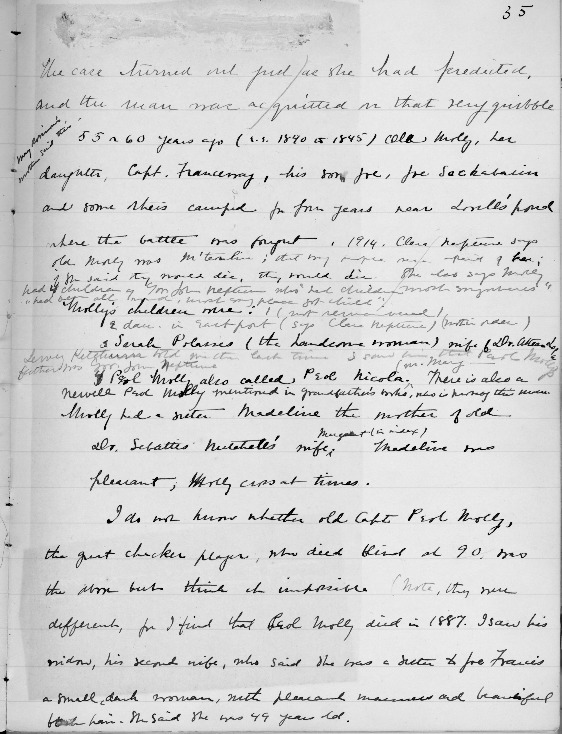 35
The case turned out just as she had predicted,
and the man was acquitted on that very quibble
55 or 60 years ago (i.e. 1840 or 1845) Old Molly, her
daughter, Capt. Francesway, his son Joe, Joe Sockabasin
and some others camped for four years near Lovell's pond
where the battle was fought. 1914. Clara Neptune says
old Molly was
if she said they would die, they would die. She also says Molly
had children of Gov John Neptune who "had children most anywheres"
"had all around, most any place got child".
Molly's children were: 1 (not remembered)
2 dau. in Eastport (says Clara Neptune)
3 Sarah Polasses (the handsome woman) wife of Dr.
told me the last time I saw him that Peol Molly's
father was Gov John Neptune
4 Peol Molly also called Peol Nicola. There is also a
Newell Peol Molly mentioned in grandfather's
Molly had a sister Madeline the mother of old
Margaret (in index)
Dr. Sebattis Mitchell's wife, Madeline was
pleasant; Molly cross at times.
I do not know whether old Capt Peol Molly,
the great checker player, who died blind at 90, was
the above but think it impossible (Note, they were
different, for I find that Peol Molly died in 1887. I saw his
widow, his second wife, who said she was a sister to Joe Francis
a small, dark woman, with pleasant manners and beautiful
hair. She said she was 49 years old.